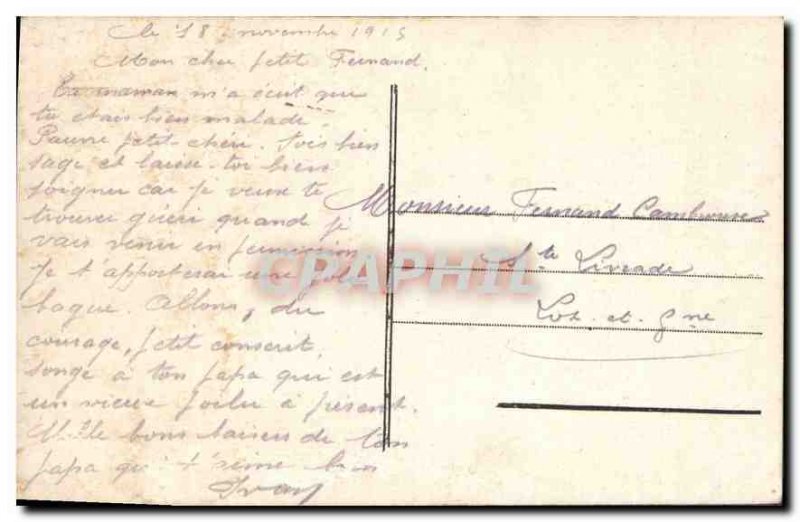 le 18 novembre 1915
Mon cher petit Fernand.
Ta maman m'a écrit que
tu étais bien malade.
Pauvre petit chéri. Sois bien
sage et laisse-toi bien
soigner car je veux te
trouver guéri quand je
vais venir en permission
Je t'apporterai une jolie
bague. Allons, du
courage, petit conscrit,
songe à ton papa qui est
un vieux poilu à présent.
Mille bons baisers de ton
papa qui t'aime bien
Monsieur Fernand
Ste Livrade
Lot-et-Gne
CPAPHIL